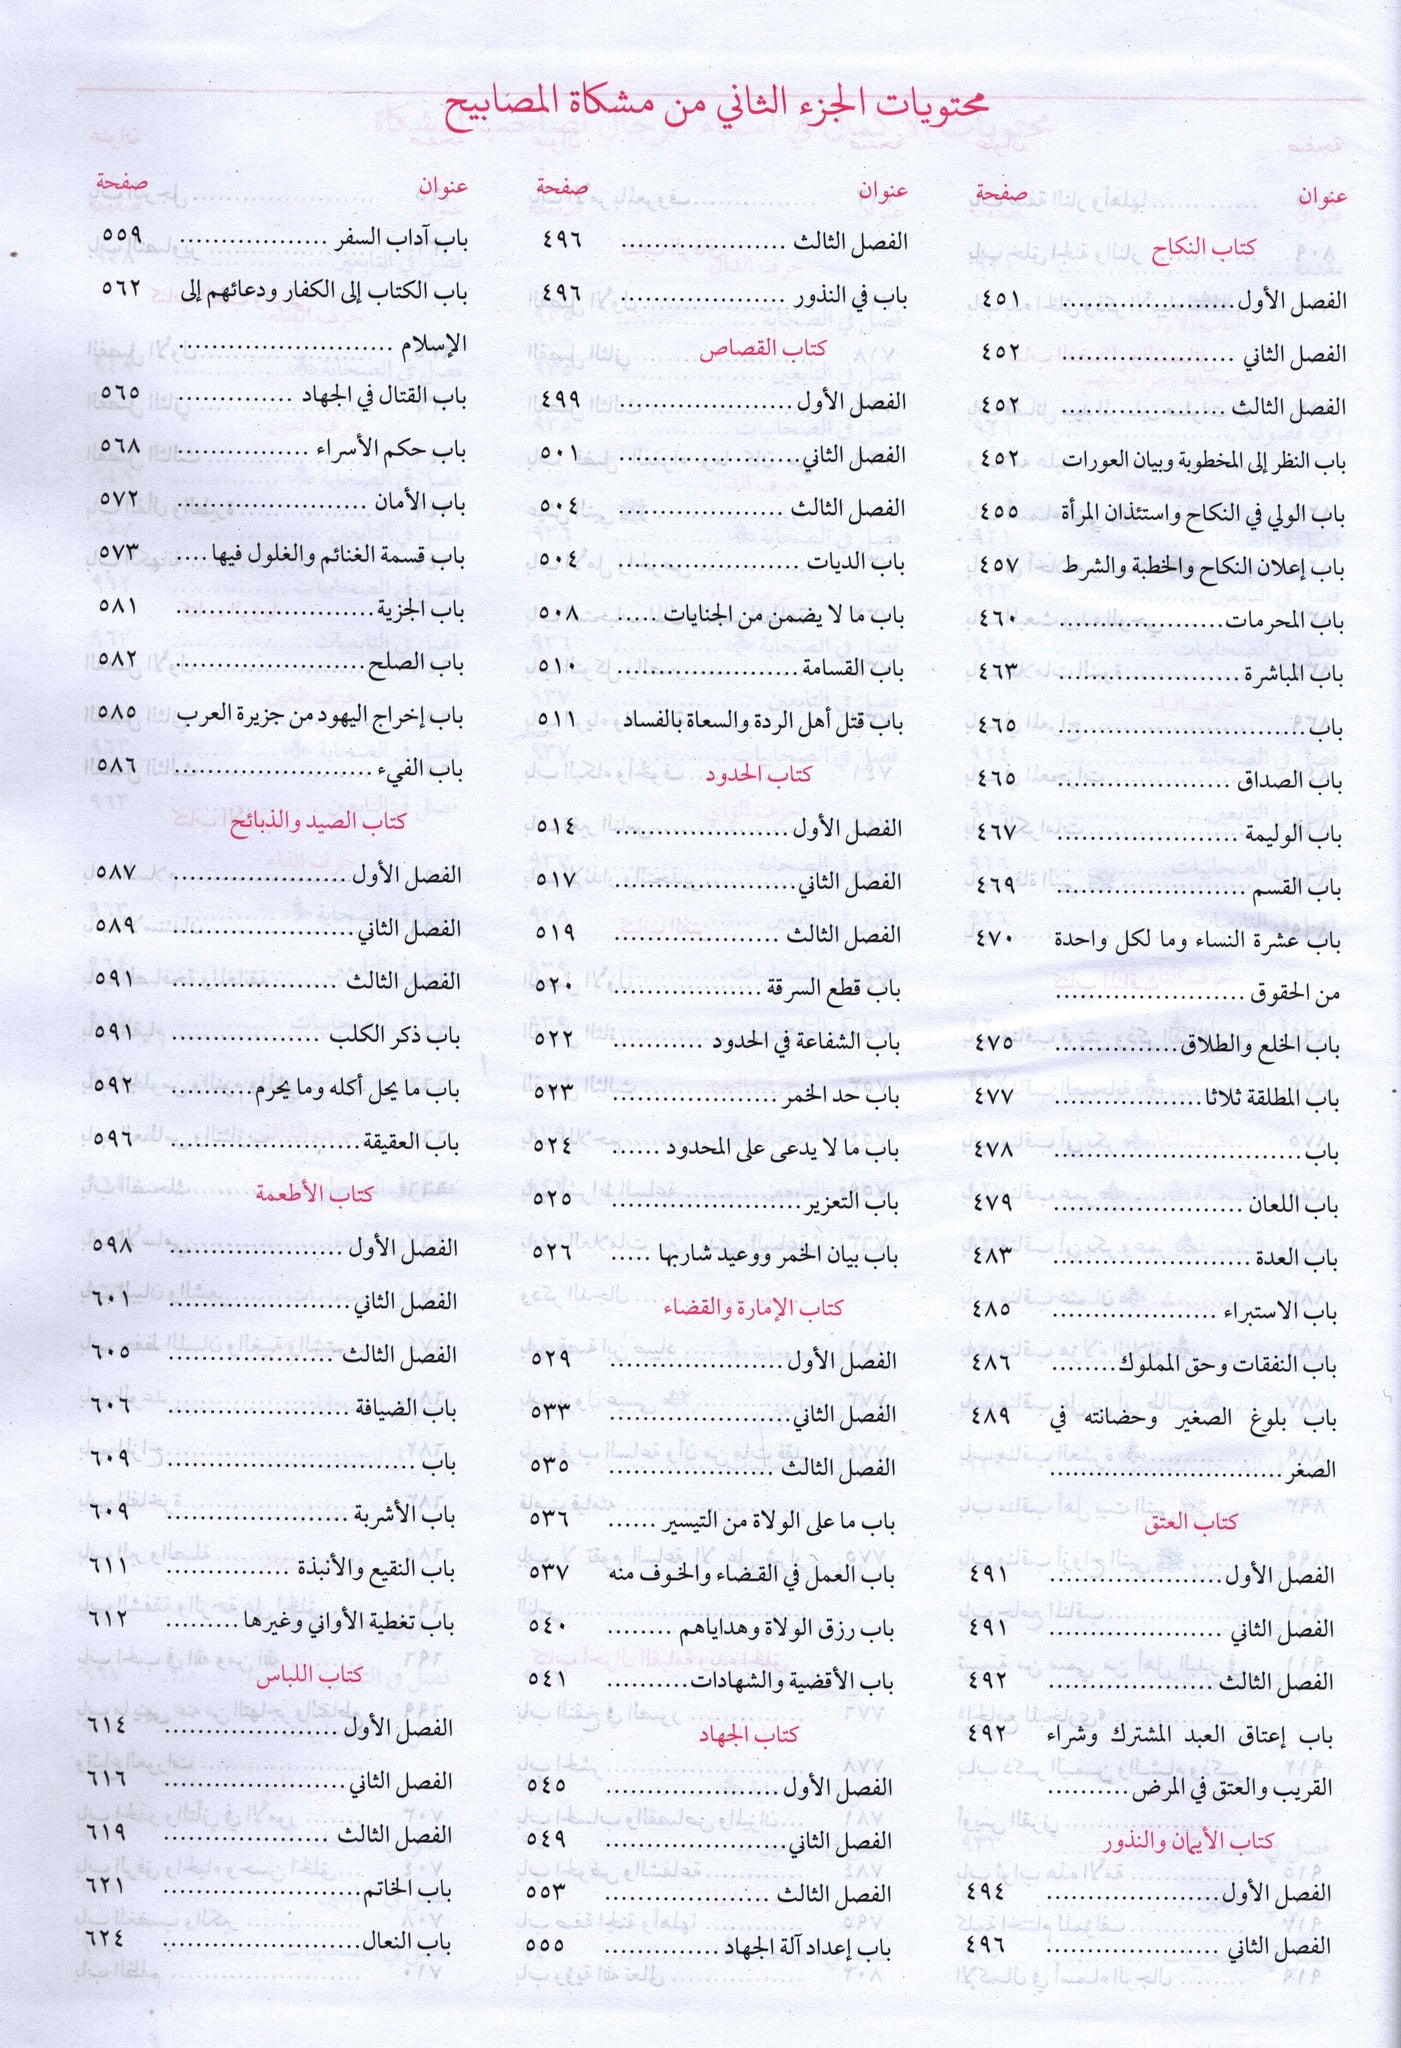 محتويات الجزء الثاني من مشكاة المصابيح
عنوان صفحة
كتاب النكاح
الفصل الأول ...................... ٤٥١
الفصل الثاني ..................... ٤٥٢
الفصل الثالث ..................... ٤٥٢
باب النظر إلى المخطوبة وبيان العورات ٤٥٢
باب الولي في النكاح واستئذان المرأة ٤٥٥
باب إعلان النكاح والخطبة والشرط ٤٥٧
باب المحرمات ..................... ٤٦٠
باب المباشرة ...................... ٤٦٣
باب ............................... ٤٦٥
باب الصداق ...................... ٤٦٥
باب الوليمة ....................... ٤٦٧
باب القسم ........................ ٤٦٩
باب عشرة النساء وما لكل واحدة ٤٧٠
من الحقوق ........................
باب الخلع والطلاق ................ ٤٧٥
باب المطلقة ثلاثا ................... ٤٧٧
باب ............................... ٤٧٨
باب اللعان ........................ ٤٧٩
باب العدة ......................... ٤٨٣
باب الاستبراء ..................... ٤٨٥
باب النفقات وحق المملوك ........ ٤٨٦
باب بلوغ الصغير وحضانته في ٤٨٩
الصغر .............................
كتاب العتق
الفصل الأول ...................... ٤٩١
الفصل الثاني ...................... ٤٩١
الفصل الثالث ..................... ٤٩٢
باب إعتاق العبد المشترك وشراء ٤٩٢
القريب والعتق في المرض ..........
كتاب الأيمان والنذور
الفصل الأول ...................... ٤٩٤
الفصل الثاني ...................... ٤٩٦
عنوان صفحة
الفصل الثالث ..................... ٤٩٦
باب في النذور ..................... ٤٩٦
كتاب القصاص
الفصل الأول ...................... ٤٩٩
الفصل الثاني ...................... ٥٠١
الفصل الثالث ..................... ٥٠٤
باب الديات ....................... ٥٠٤
باب ما لا يضمن من الجنايات ..... ٥٠٨
باب القسامة ....................... ٥١٠
باب قتل أهل الردة والسعاة بالفساد ٥١١
كتاب الحدود
الفصل الأول ...................... ٥١٤
الفصل الثاني ...................... ٥١٧
الفصل الثالث ..................... ٥١٩
باب قطع السرقة ................... ٥٢٠
باب الشفاعة في الحدود ........... ٥٢٢
باب حد الخمر ..................... ٥٢٣
باب ما لا يدعى على المحدود ...... ٥٢٤
باب التعزير ........................ ٥٢٥
باب بيان الخمر ووعيد شاربها ..... ٥٢٦
كتاب الإمارة والقضاء
الفصل الأول ...................... ٥٢٩
الفصل الثاني ...................... ٥٣٣
الفصل الثالث ..................... ٥٣٥
باب ما على الولاة من التيسير ...... ٥٣٦
باب العمل في القضاء والخوف منه ٥٣٧
باب رزق الولاة وهداياهم ........ ٥٤٠
باب الأقضية والشهادات .......... ٥٤١
كتاب الجهاد
الفصل الأول ...................... ٥٤٥
الفصل الثاني ...................... ٥٤٩
الفصل الثالث ..................... ٥٥٣
باب إعداد آلة الجهاد .............. ٥٥٥
عنوان صفحة
باب آداب السفر ................... ٥٥٩
باب الكتاب إلى الكفار ودعائهم إلى ٥٦٢
الإسلام ...........................
باب القتال في الجهاد .............. ٥٦٥
باب حكم الأسراء ................. ٥٦٨
باب الأمان ........................ ٥٧٢
باب قسمة الغنائم والغلول فيها .... ٥٧٣
باب الجزية ......................... ٥٨١
باب الصلح ........................ ٥٨٢
باب إخراج اليهود من جزيرة العرب ٥٨٥
باب الفيء ......................... ٥٨٦
كتاب الصيد والذبائح
الفصل الأول ...................... ٥٨٧
الفصل الثاني ...................... ٥٨٩
الفصل الثالث ..................... ٥٩١
باب ذكر الكلب ................... ٥٩١
باب ما يحل أكله وما يحرم .......... ٥٩٢
باب العقيقة ........................ ٥٩٦
كتاب الأطعمة
الفصل الأول ...................... ٥٩٨
الفصل الثاني ...................... ٦٠١
الفصل الثالث ..................... ٦٠٥
باب الضيافة ....................... ٦٠٦
باب ............................... ٦٠٩
باب الأشربة ....................... ٦٠٩
باب النقيع والأنبذة ............... ٦١١
باب تغطية الأواني وغيرها ......... ٦١٢
كتاب اللباس
الفصل الأول ...................... ٦١٤
الفصل الثاني ...................... ٦١٦
الفصل الثالث ..................... ٦١٩
باب الخاتم ......................... ٦٢١
باب النعال ......................... ٦٢٤